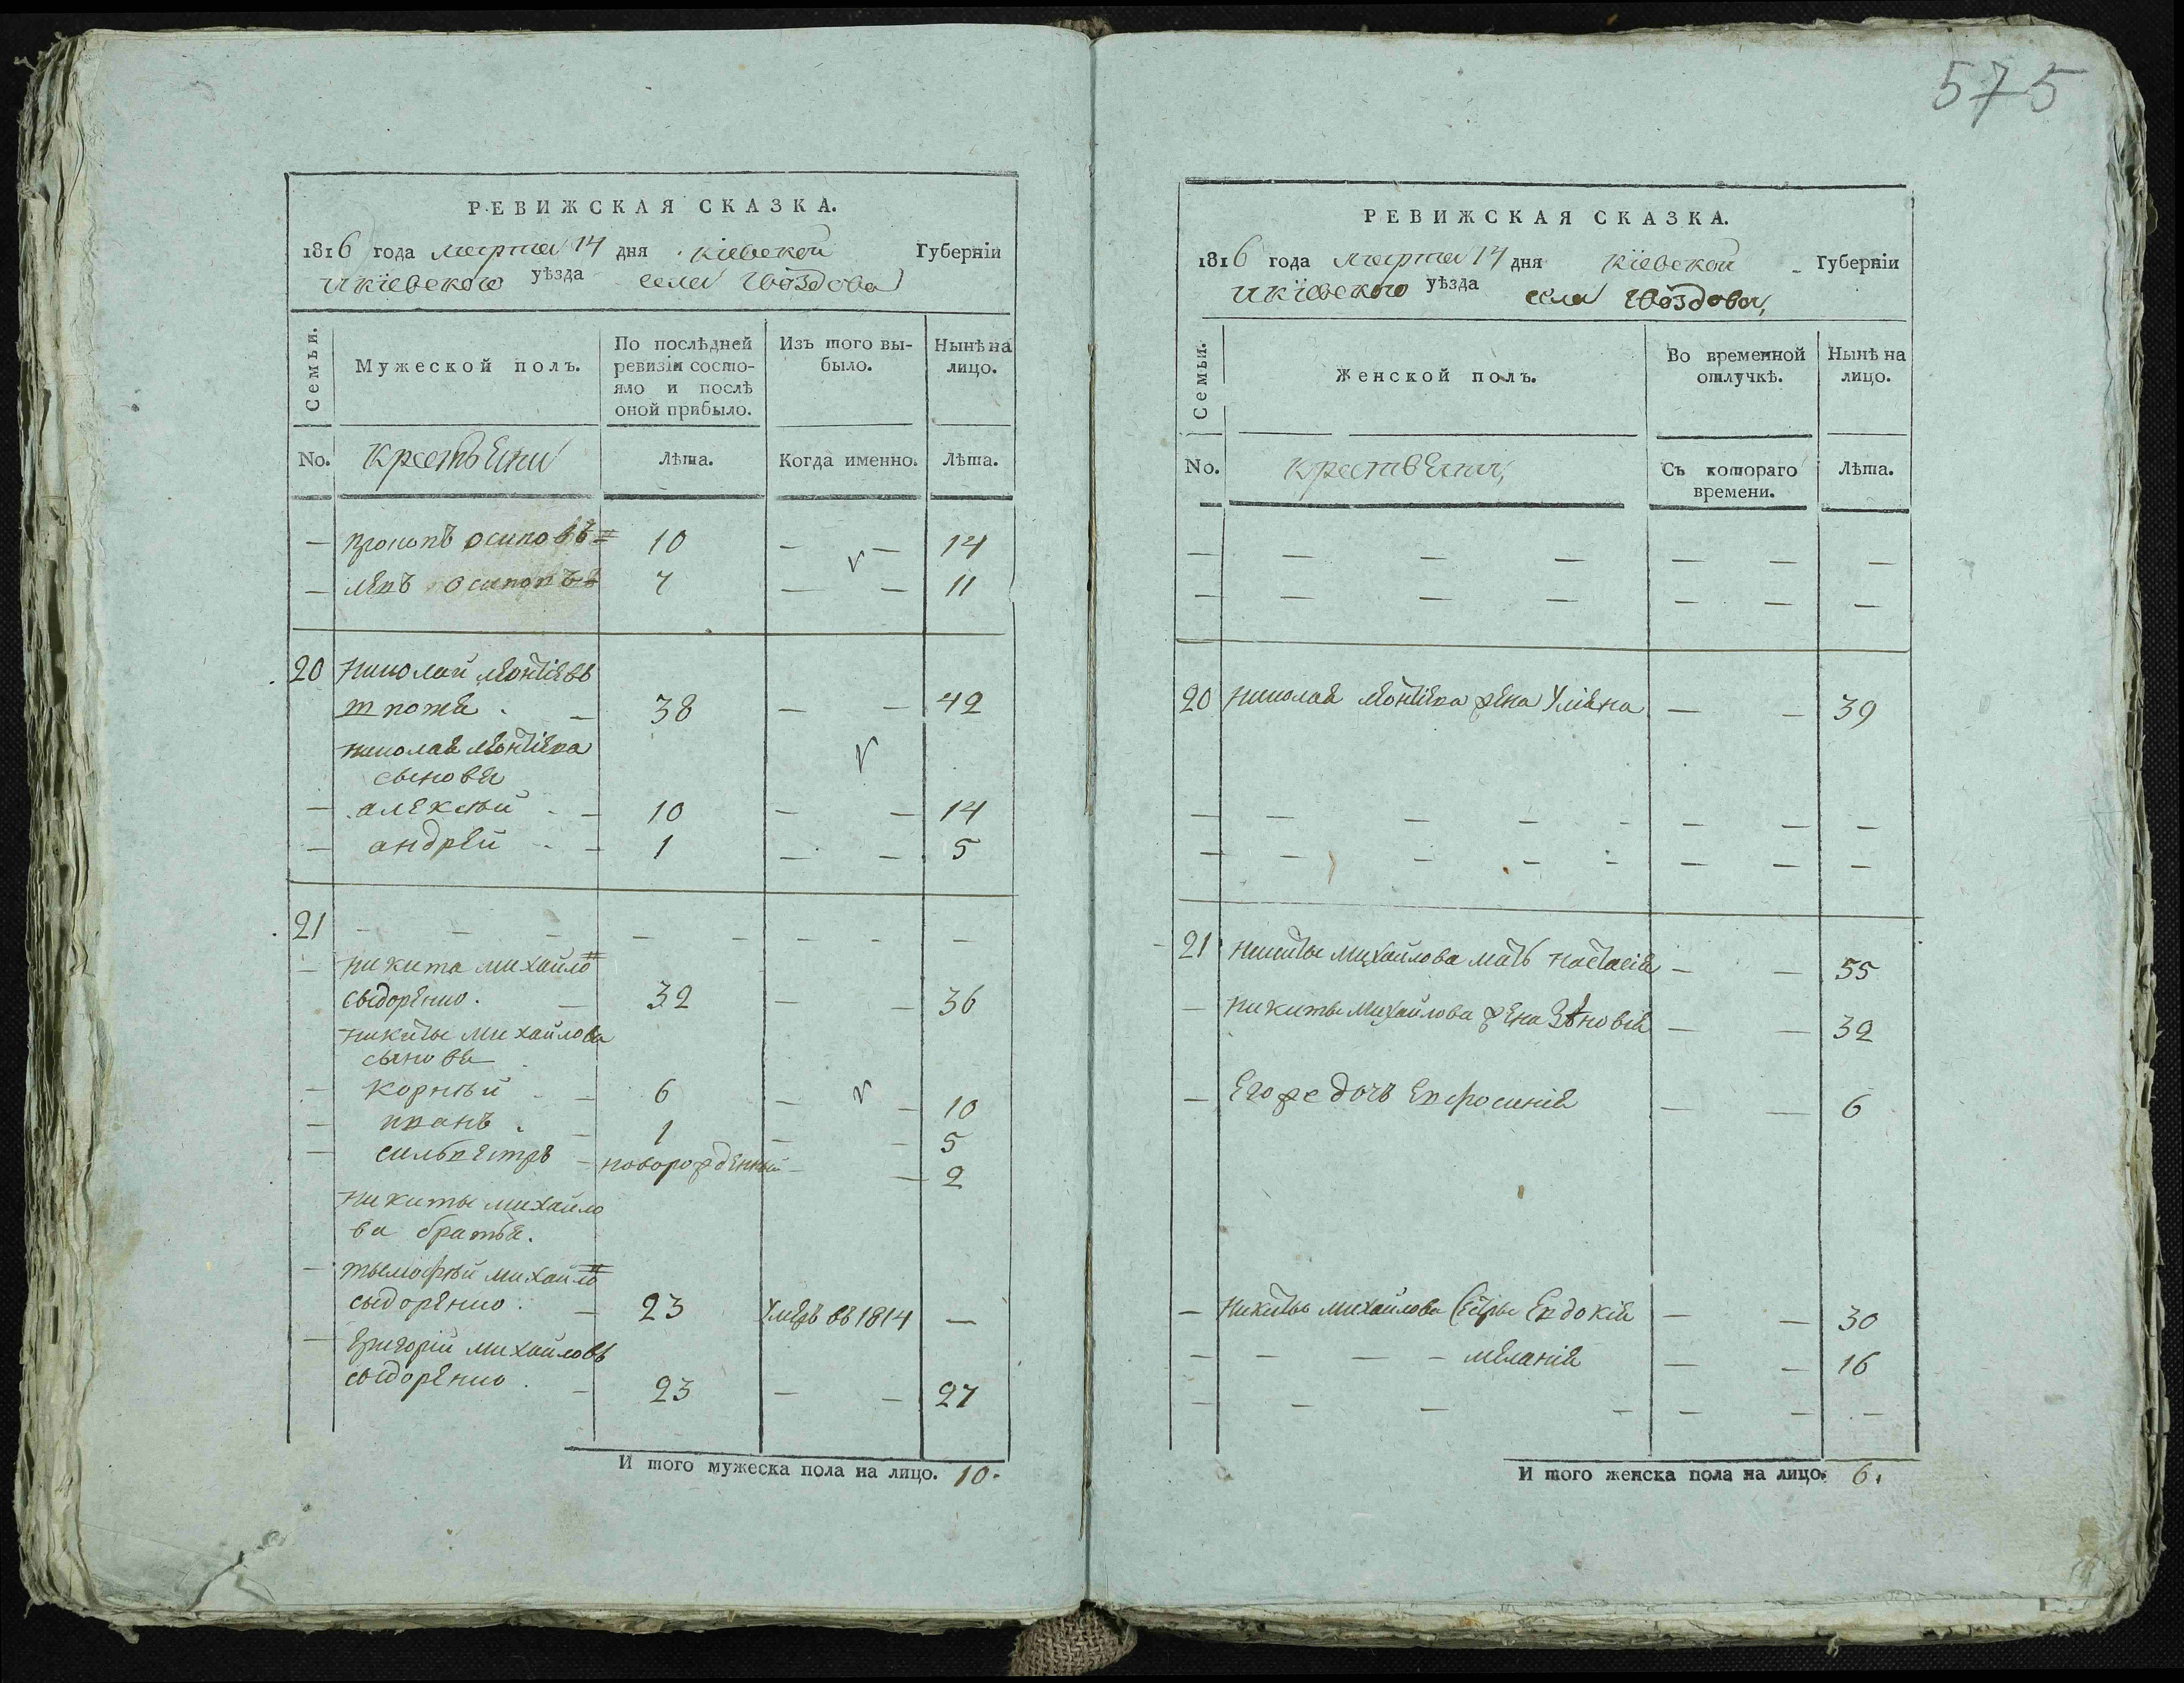 575
РЕВИЖСКАЯ СКАЗКА.
1816 года марта 14 дня Кіевской Губерніи
и Кіевского уѣзда села Гвоздова
Семьи.
Мужеской полъ.
По послѣдней
ревизіи состо-
яло и послѣ
оной прибыло.
Изъ того вы-
было.
Нынѣ на
лицо.
No. крестьяни Лѣта. Когда именно. Лѣта.
— Прокопъ Осиповъ 10 — — 14
— Левъ Осиповъ 7 — — 11
20 Николай Леонтіевъ
38 — — 42
Николая Леонтіева
сыновя
— Алексѣй — 10 — — 14
— Андрей — 1 — — 5
21 — — — — — — — —
— Никита Михайло
Сыдоренко. — 32 — — 36
Никиты Михайлова
сыновя
— Корнѣй — 6 — — 10
— Иванъ — 1 — — 5
— Сильвестръ — новорожденный — — 2
Никиты Михайло
ва братья.
— Тымофѣй Михайло
Сыдоренко. — 23 Умеръ въ 1814 —
— Григорій Михайловъ
Сыдоренко. — 23 — — 27
И того мужеска пола на лицо. 10.
РЕВИЖСКАЯ СКАЗКА.
1816 года марта 14 дня Кіевской Губерніи
и Кіевского уѣзда села Гвоздова,
Семьи.
Женской полъ.
Во временной
отлучкѣ.
Нынѣ на
лицо.
No. крестьяни, Съ котораго
времени. Лѣта.
— — — — — — —
— — — — — — —
20 Николая Леонтіева жена Уліяна — — 39
— — — — — — —
— — — — — — —
21 Никиты Михайлова мать Настасія — — 55
— Никиты Михайлова жена Зѣновія — — 32
— Его же дочь Евфросинія — — 6
— Никиты Михайлова Сестры Евдокія — — 30
— — — — Меланія — — 16
— — — — — — —
И того женска пола на лицо. 6.